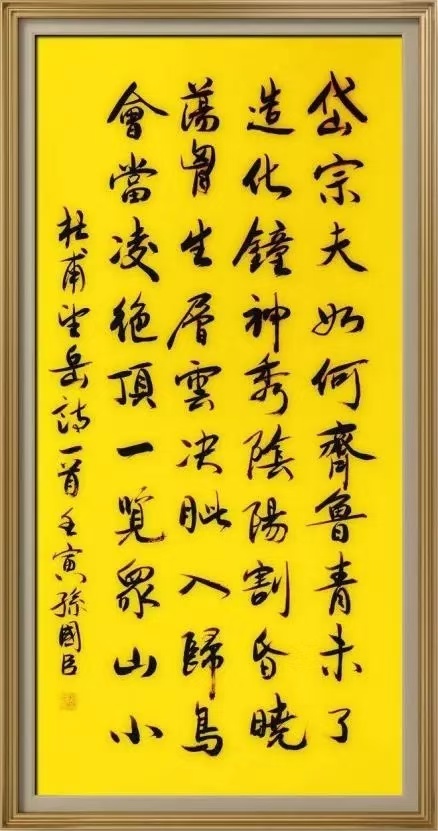 岱宗夫如何齊魯青未了
造化鐘神秀陰陽割昏曉
蕩胷生層雲决眦入歸鳥
會當凌絶頂一覽眾山小
杜甫望岳詩一首壬寅孫國臣